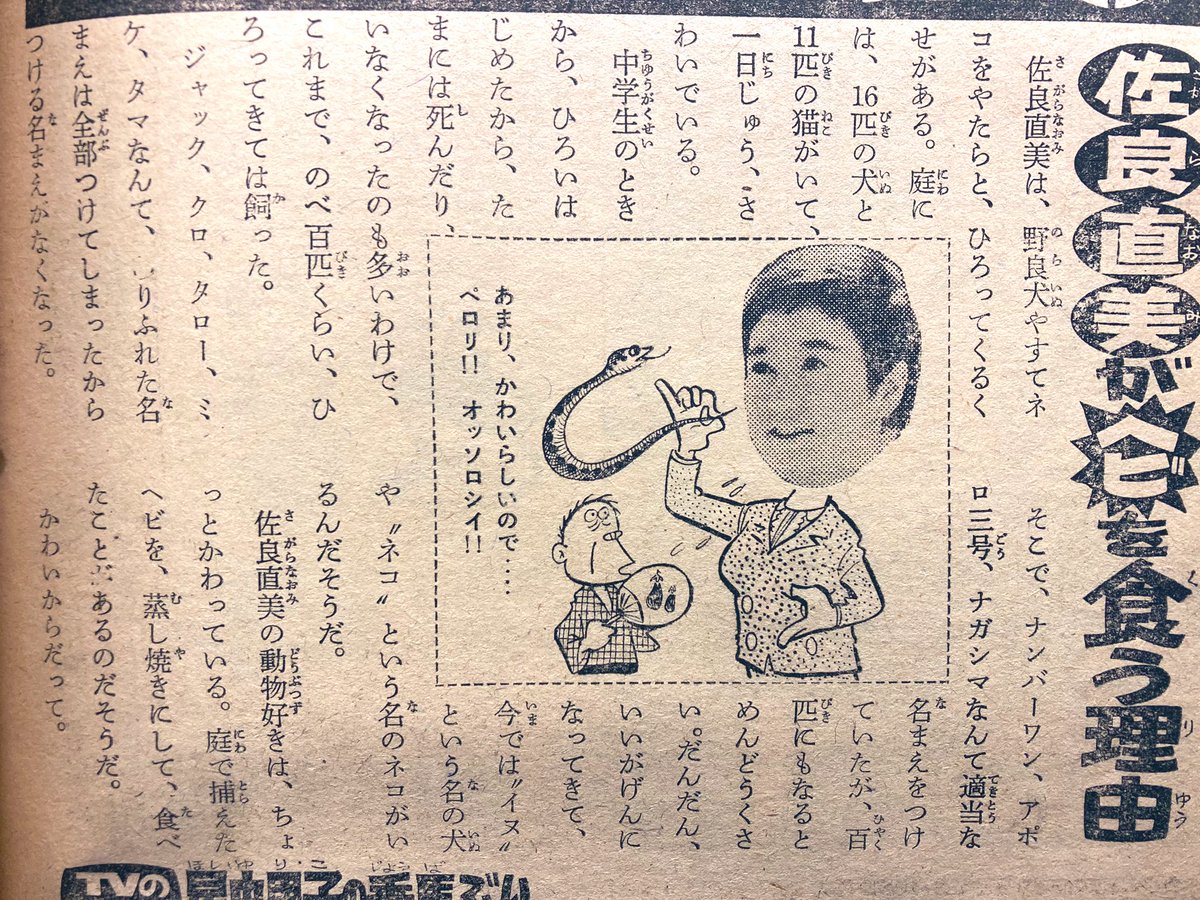 佐良直美がヘビを食う理由
佐良直美は、野良犬やすてネ
コをやたらと、ひろってくるく
せがある。庭に
は、16匹の犬と
11匹の猫がいて、
一日じゅう、さ
わいでいる。
中学生のとき
から、ひろいは
じめたから、た
まには死んだり、
いなくなったのも多いわけで、
これまで、のべ百匹くらい、ひ
ろってきては飼った。
ジャック、クロ、タロー、ミ
ケ、タマなんて、ありふれた名
まえは全部つけてしまったから
つける名まえがなくなった。
あまり、かわいらしいので‥‥
ペロリ!! オッソロシイ!!
そこで、ナンバーワン、アポ
ロ三号、ナガシマなんて適当な
名まえをつけ
ていたが、百
匹にもなると
めんどうくさ
い。だんだん、
いいがげんに
なってきて、
今では〝イヌ〟
という名の犬
や〝ネコ〟という名のネコがい
るんだそうだ。
佐良直美の動物好きは、ちょ
っとかわっている。庭で捕えた
ヘビを、蒸し焼きにして、食べ
たことがあるのだそうだ。
かわいからだって。
TVの